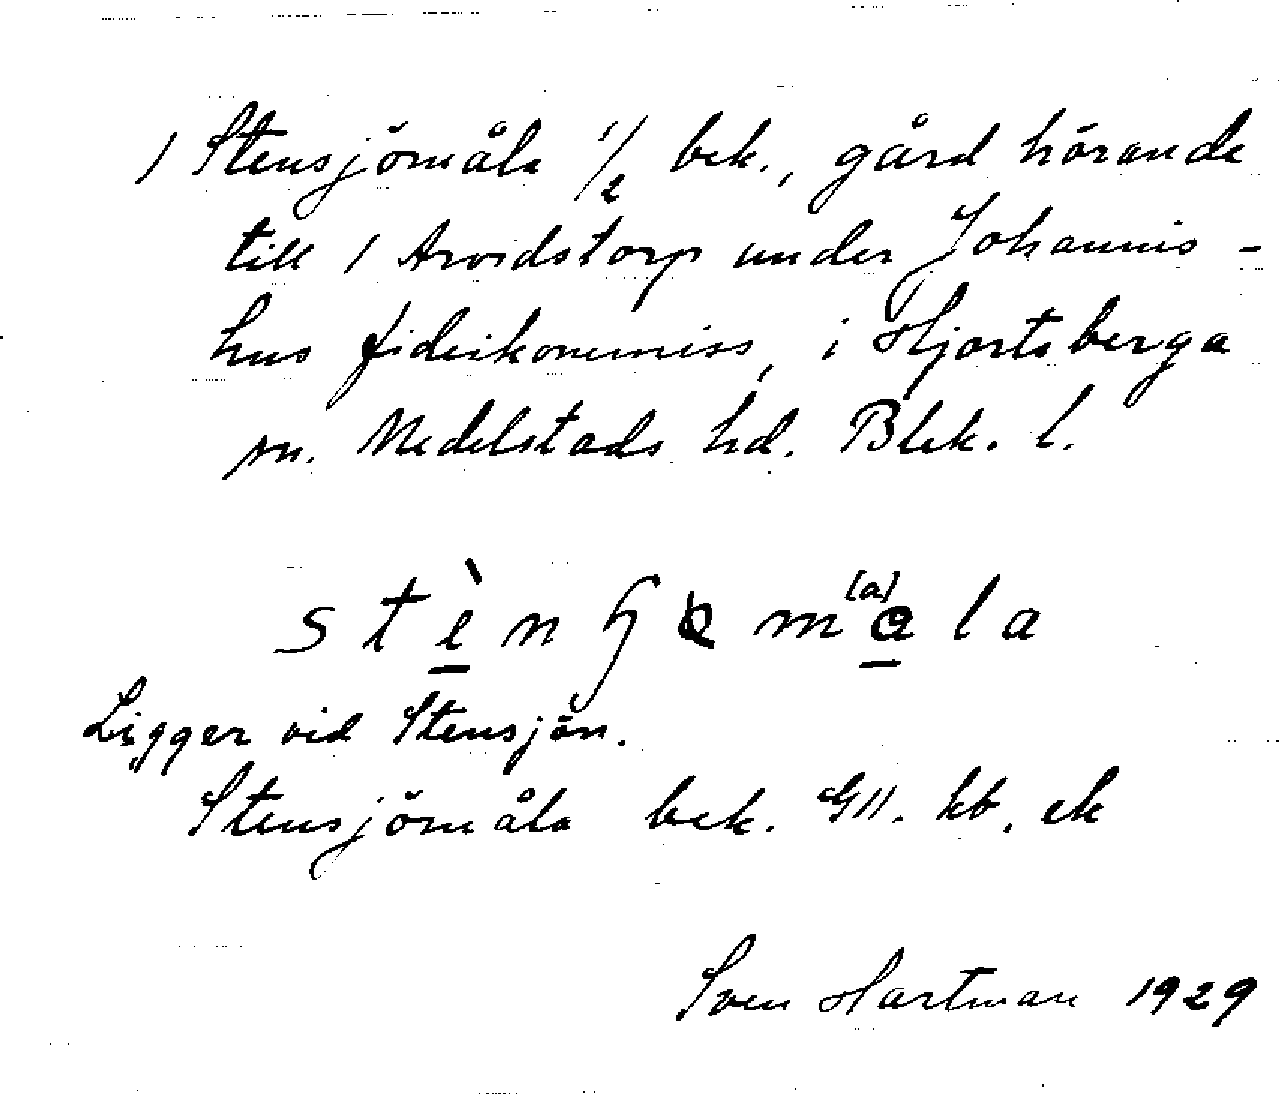 1 Stensjömåla 1/2 bek., gård hörande
till 1 Arvidstorp under Johannis-
hus fideikommiss, i Hjortsberga
sn. Medelstads hd. Blek. l.
Ligger vid Stensjön.
Stensjömåla bek. GII. kb, ek
Sven Hartman 1929